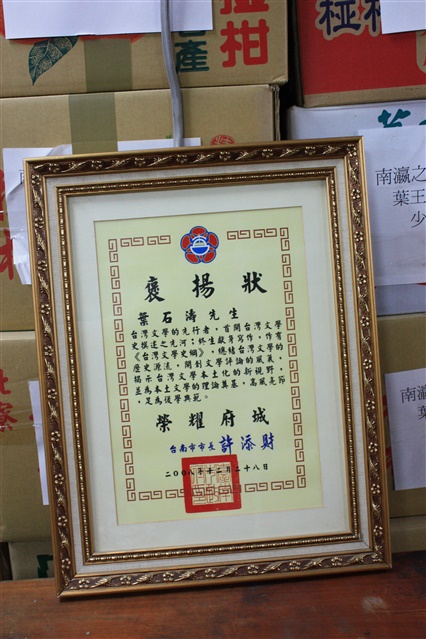 柑
產
椪
南瀛之
葉王
少
褒揚狀
葉石濤先生
台灣文學的先行者，首開台灣文學
史撰述之先河；終生獻身寫作，作有
《台灣文學史綱》，總結台灣文學的
歷史源流，開創文學評論的風氣，
揭示台灣文學本土化的新視野，
並為本土文學的理論奠基，高風亮節
，足為後學典範。
榮耀府城
台南市市長 許添財
二００八年十二月二十八日